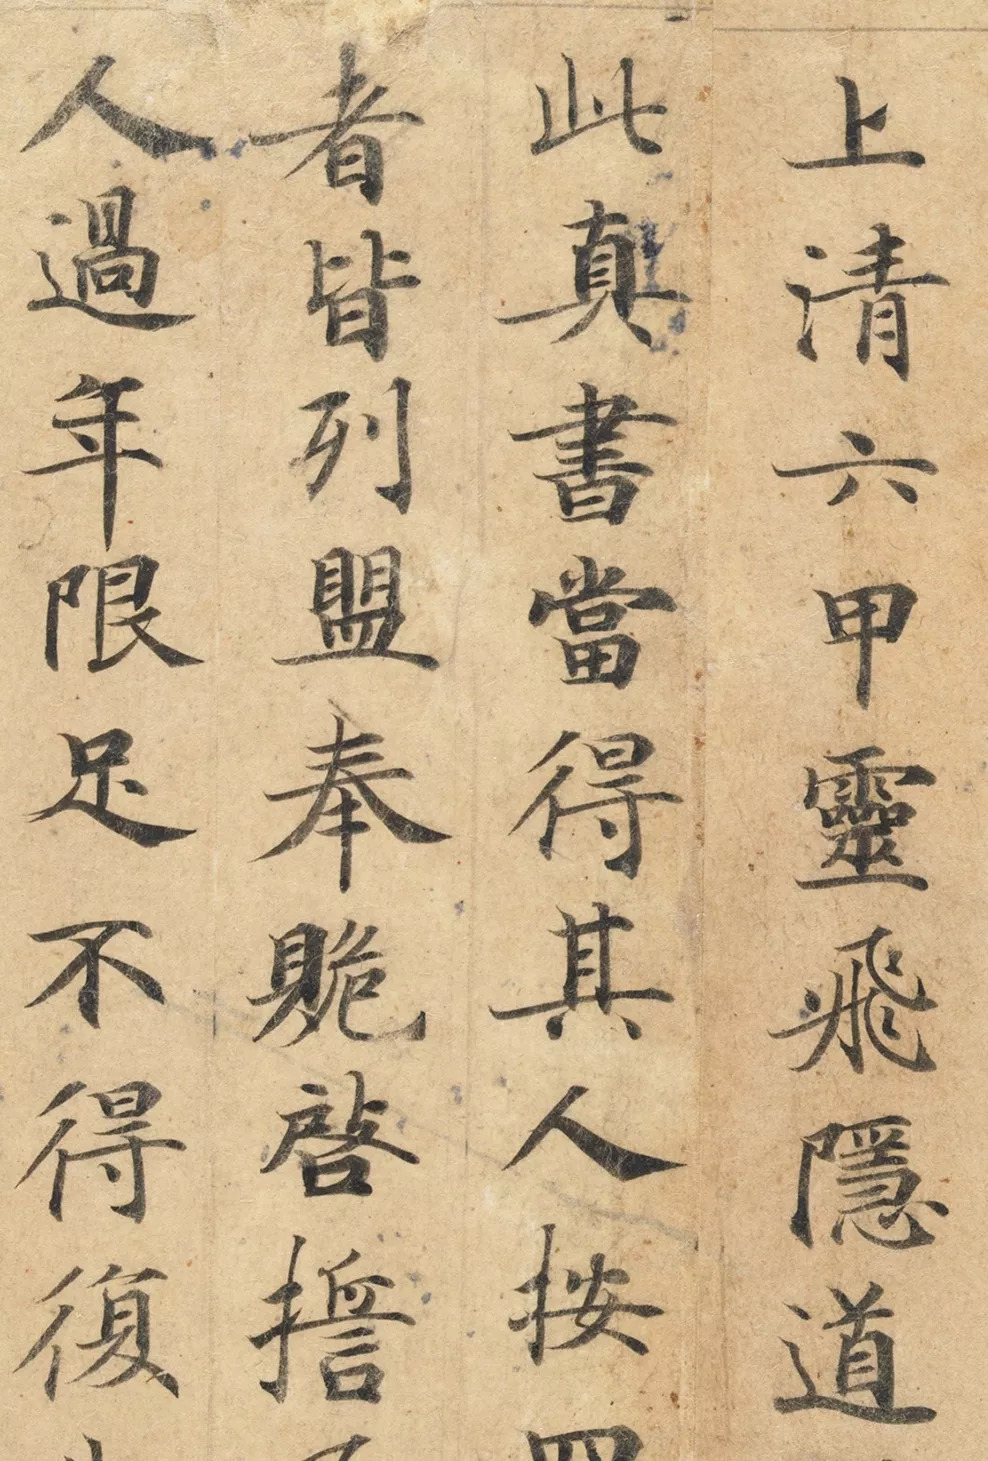 上清六甲靈飛隱道
此真書當得其人按四
者皆列盟奉賝啓擔
人過年限足不得復